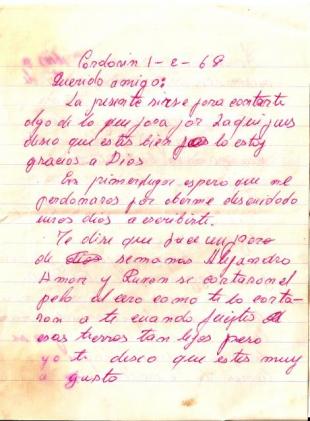 1-2-68
Querido amigo:
La presente sirve para contarte
algo de lo que pasa por aqui pues
deseo que estes bien yo lo estoy
gracias a Dios
En primer lugar espero que me
perdonaras por aberme descuidado
unos dias a escribirte.
Te dire que hace un paro
de semanas Alejandro
Amor y se cortaron el
pelo al cero como te lo corta-
ron a ti cuando fuistes a
esas tierras tan lejos pero
yo te deseo que estes muy
a gusto